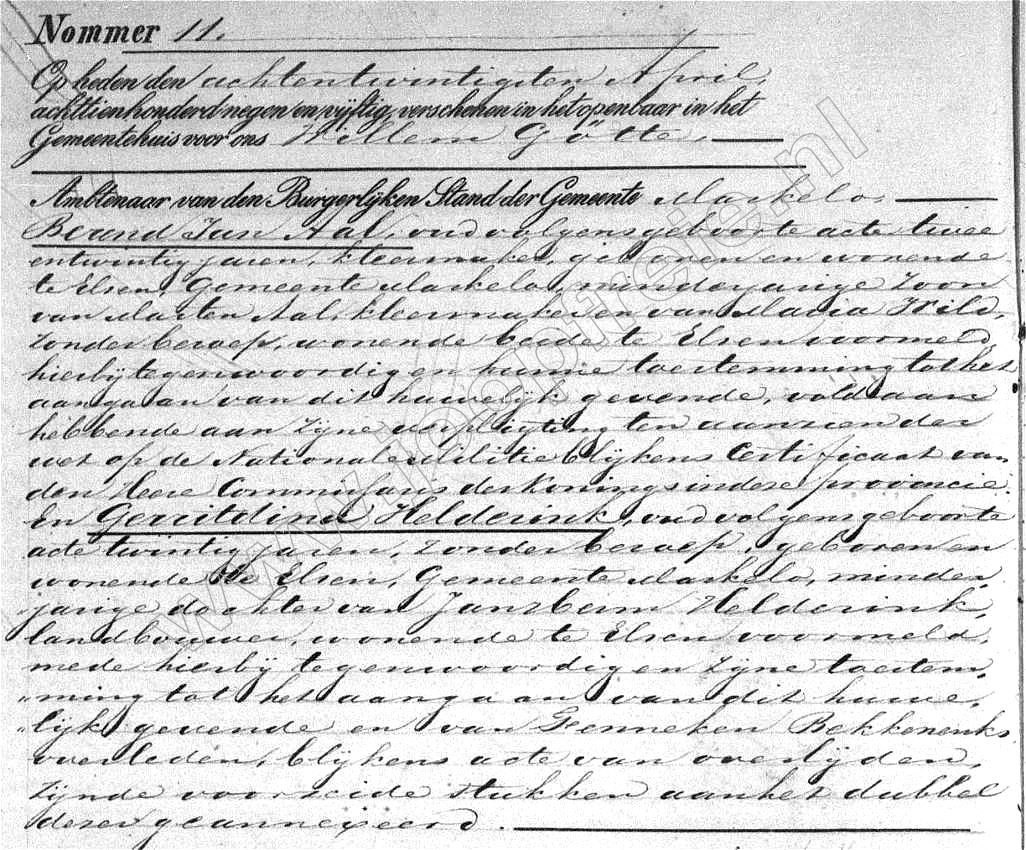 Nommer 11.
Op heden den achtentwintigsten April,
achttienhonderd negen en vijftig, verschenen in het openbaar in het
Gemeentehuis voor ons Willem Götte,
Ambtenaar van den Burgerlijken Stand der Gemeente Markelo,
Berend Jan Aal, oud volgens geboorte acte twee
entwintig jaren, kleermaker, geboren en wonende
te Elsen, Gemeente Markelo, minderjarige Zoon
van Marten Aal, kleermaker en van Maria Wild,
zonder beroep, wonende beide te Elsen voormeld,
hierbij tegenwoordig en hunne toestemming tot het
aangaan van dit huwelijk gevende, voldaan
hebbende aan zijne verpligting ten aanzien der
wet op de Nationale Militie blijkens Certificaat van
den Heere Commissaris des Konings in deze provincie.
En Gerritdina Helderink, oud volgens geboorte
acte twintig jaren, zonder beroep, geboren en
wonende te Elsen, Gemeente Markelo, minder,
"jarige dochter van Jan Helderink,
landbouwer, wonende te Elsen voormeld,
mede hierbij tegenwoordig en zijne toestem,
"ming tot het aangaan van dit huwe,
"lijk gevende en van Fenneken Bekkenenks
overleden, blijkens acte van overlijden,
zijnde voorzeide stukken aan het dubbel
dezer geannexeerd.
www.jeapfreie.nl